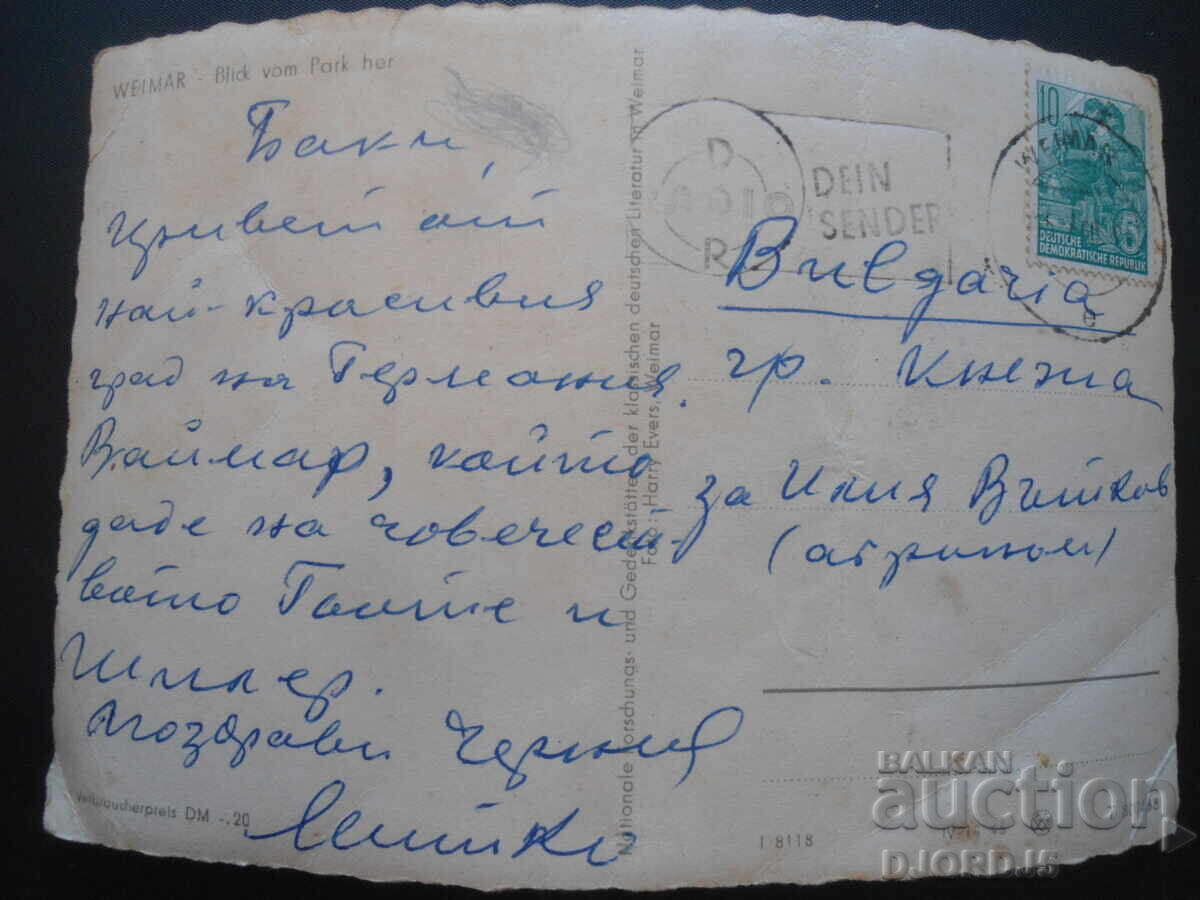 WEIMAR - Blick vom Park her
Баки,
цвет от
най-красивия
град на Германия,
Ваймар, който
даде на човечест-
вото Гьоте и
Шилер.
Поздрави Черния
Verbraucherpreis DM -.20
Nationale Forschungs- und Gedenkstätten der klassischen deutschen Literatur in Weimar
Foto: Harry Evers, Weimar
D
R
DEIN
SENDER
WEIMAR
10
5
DEUTSCHE
DEMOKRATISCHE REPUBLIK
Bulgaria
гр. Кнежа
за Илия Вътков
(агроном)
T 8118
BALKAN
auction
DJORDJ5